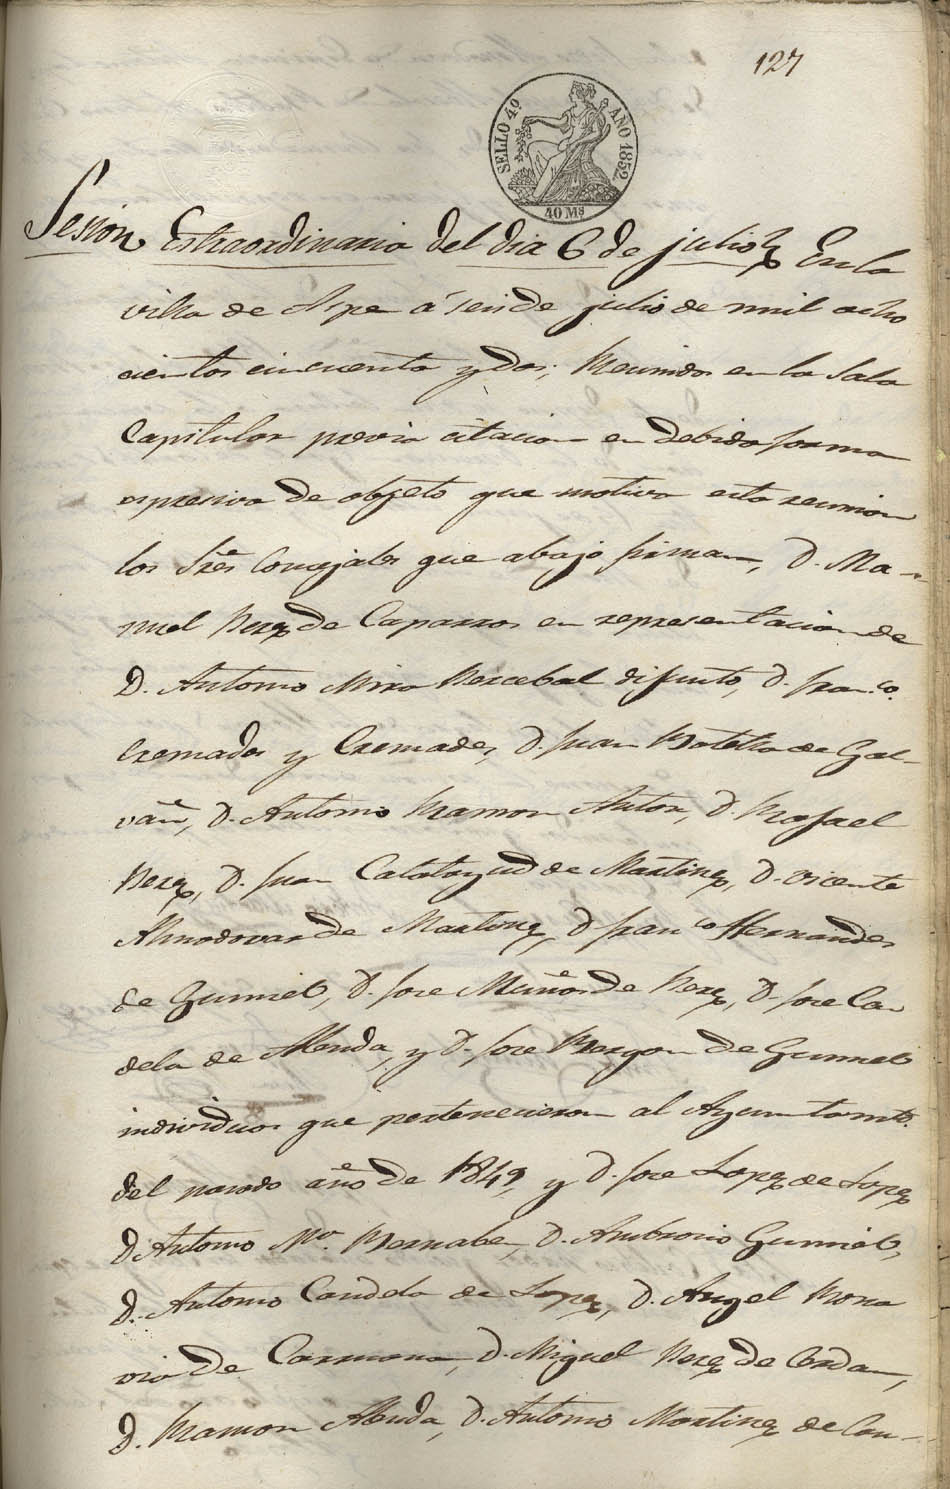 127
SELLO 4º AÑO 1852
40 Ms
Sesion Estraordinaria del dia 6 de julio En la
villa de Aspe á seis de julio de mil ocho
cientos cincuenta y dos; Reunidos en la Sala
Capitular previa citacion en debida forma
espresiva de objeto que motiva esta reunion
los Sres Concejales que abajo firman, D. Ma-
nuel Perez de Caparros en representacion de
D. Antonio Mira Percebal difunto, D. Franco.
Cremades y Cremades, D. Juan Botella de Gal-
vañ, D. Antonio Ramon Anton, D. Rafael
Perez, D. Juan Calatayud de Martinez, D. Vicente
Almodovar de Martinez, D Franco Hernandez
de Gumiel, D. Jose Muñoz de Perez, D. Jose Can
dela de Alenda, y D. Jose Berzon de Gumiel
individuos que pertenecieron al Ayuntamto.
del pasado año de 1849, y D. Jose Lopez de Lopez
D Antonio Ma. Bernabe, D. Ambrosio Gumiel,
D. Antonio Candela de Lopez, D. Angel
de Carmona, D. Miguel Perez de Cerdan,
D. Ramon Alenda, D. Antonio Martinez de Can-